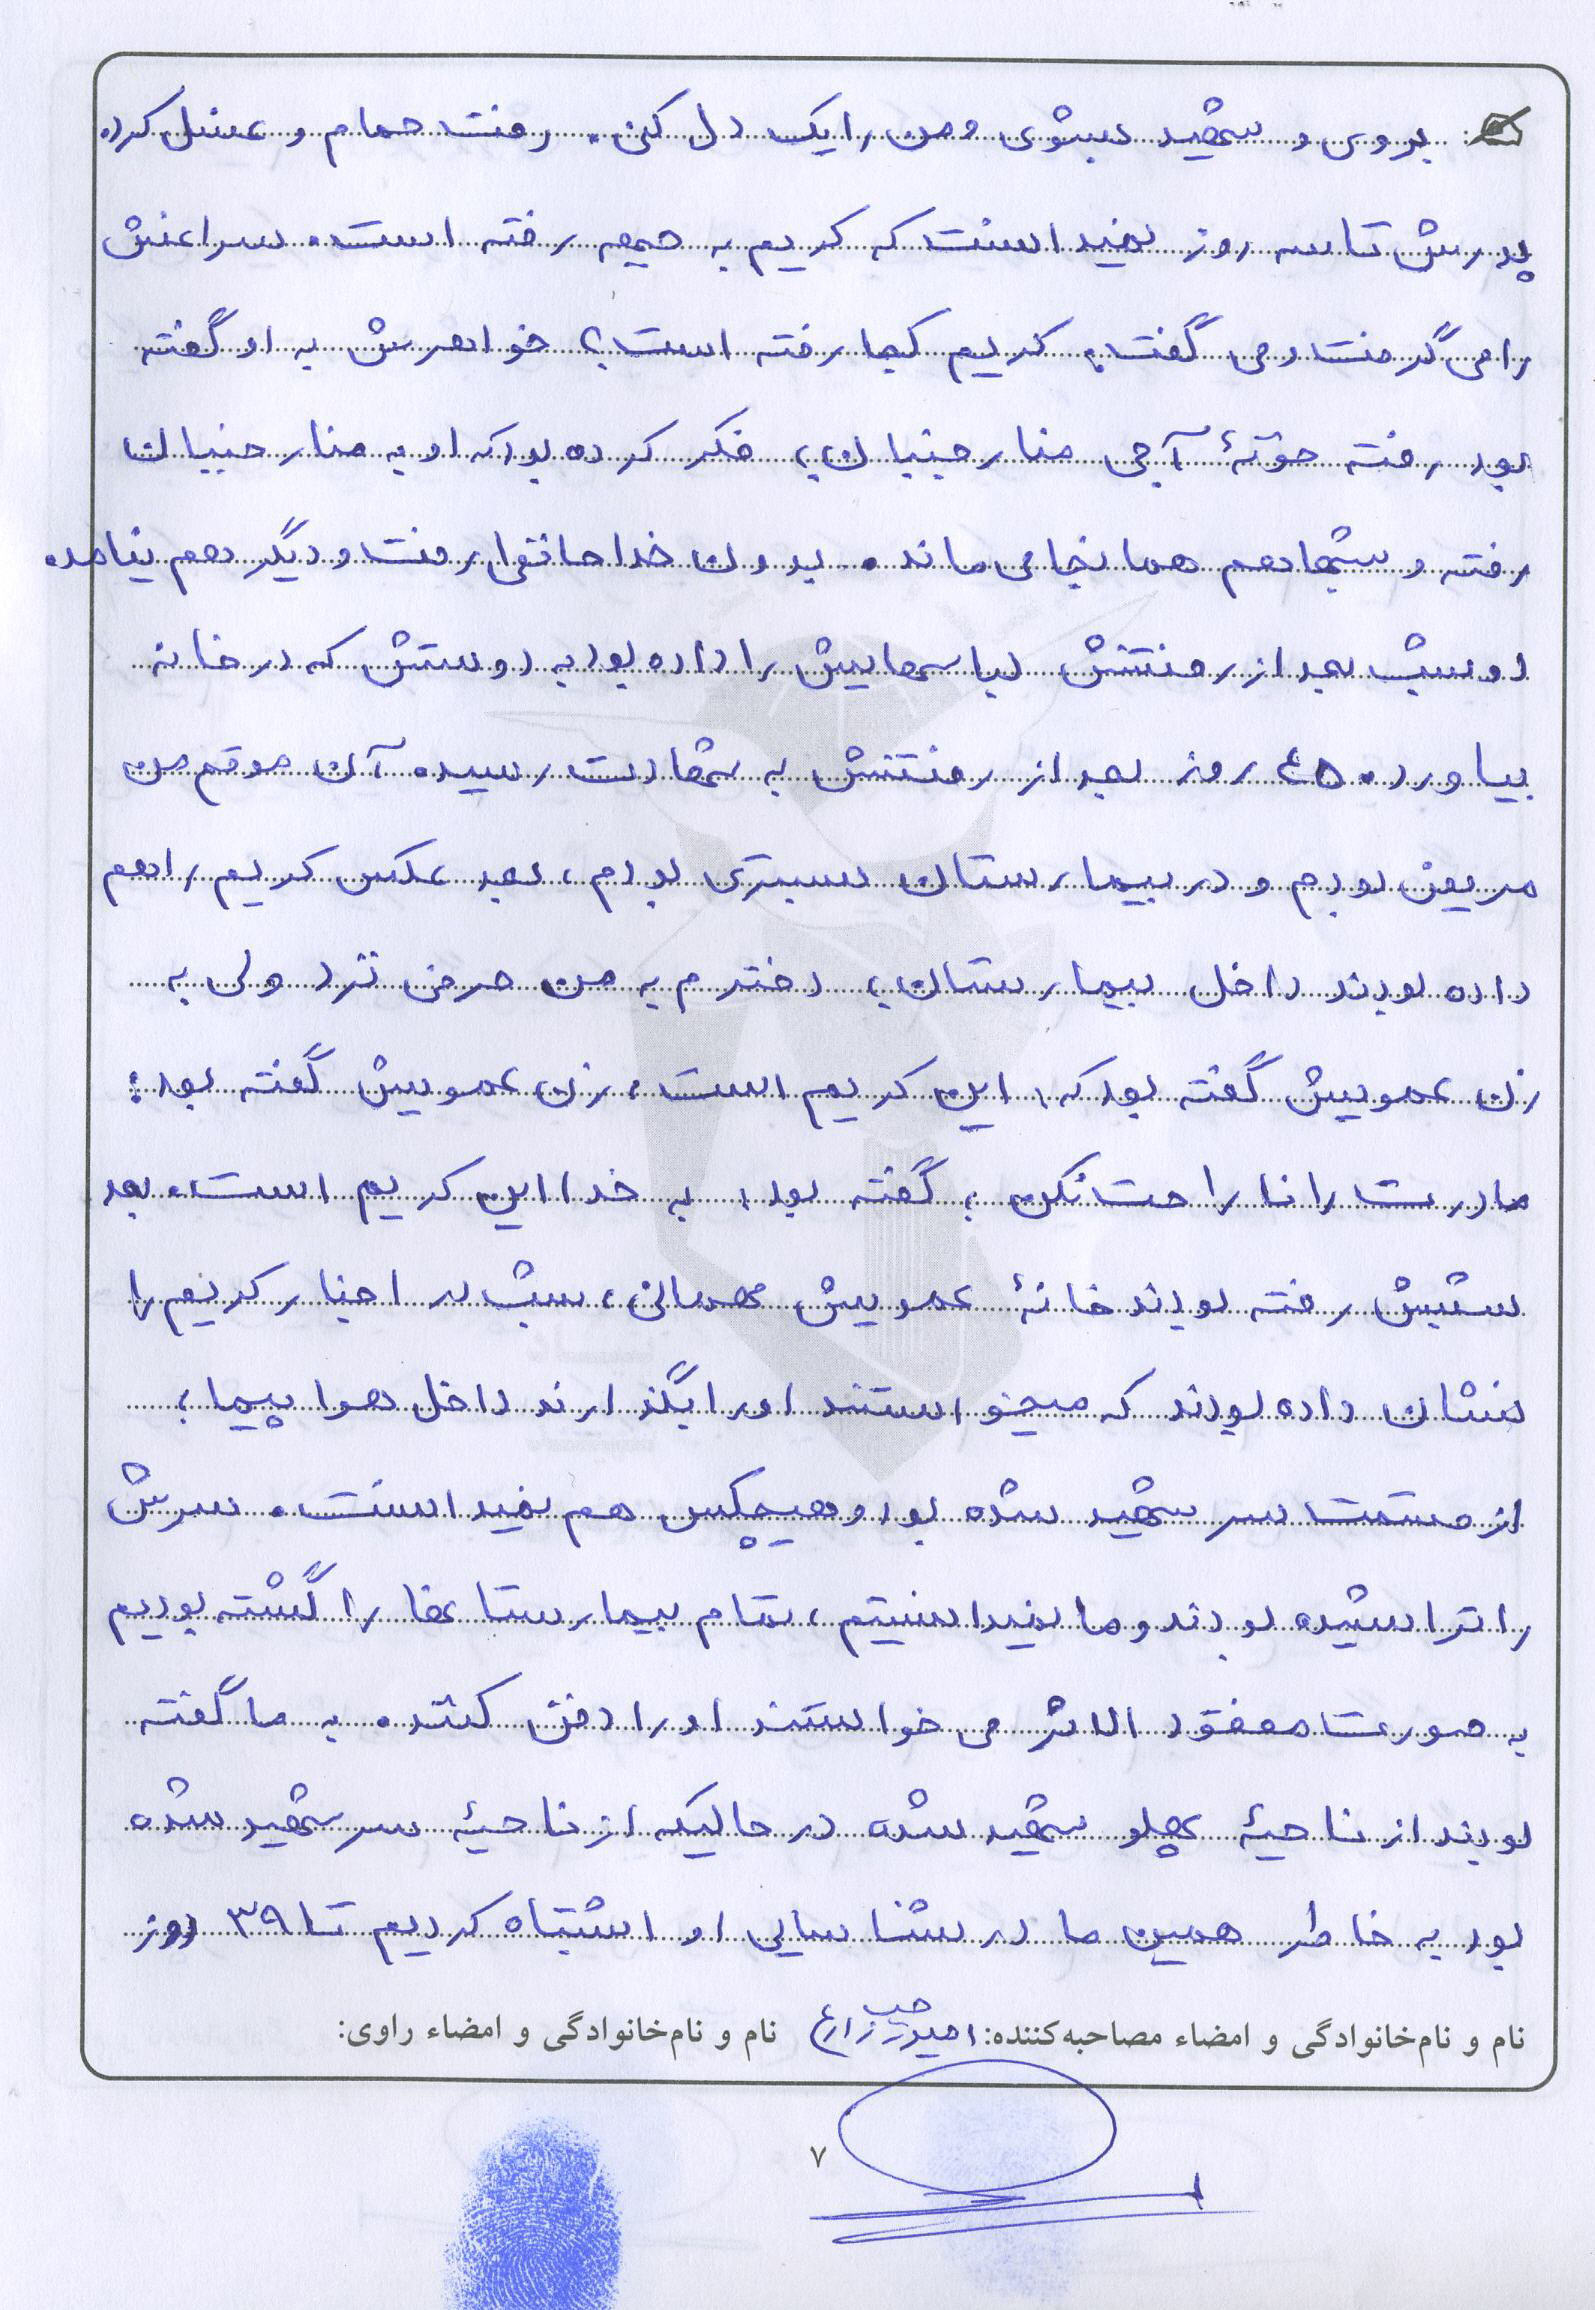 بروی و شهید بشوی و من را یک دل کنی. رفت حمام و غسل کرد.
پدرش تا سه روز نمیدانست که کریم به جبهه رفته است. سراغش
را می گرفت و می گفت: کریم کجا رفته است؟ خواهرش به او گفته
بود رفته خونهٔ آجی منارجنبان، فکر کرده بود که او به منارجنبان
رفته و شبها هم همانجا می ماند. بدون خداحافظی رفت و دیگر هم نیامد.
دو شب بعد از رفتنش لباسهایش را داده بود به دوستش که در خانه
بیاورد. ۴۵ روز بعد از رفتنش به شهادت رسید. آن موقع من
مریض بودم و در بیمارستان بستری بودم، بعد عکس کریم را هم
داده بودند داخل بیمارستان، دخترم به من حرفی نزد ولی به
زن عمویش گفته بود که، این کریم است، زن عمویش گفته بود:
مادرت را ناراحت نکن، گفته بود، به خدا این کریم است. بعد
شبش رفته بودند خانهٔ عمویش مهمانی، شب در اخبار کریم را
نشان داده بودند که میخواستند او را بگذارند داخل هواپیما،
از قسمت سر شهید شده بود و هیچکس هم نمیدانست. سرش
را تراشیده بودند و ما نمیدانستیم، تمام بیمارستانها را گشته بودیم
به صورت مفقود الاثر می خواستند او را دفن کنند. به ما گفته
بودند از ناحیهٔ پهلو شهید شده در حالیکه از ناحیهٔ سر شهید شده
بود به خاطر همین ما در شناسایی او اشتباه کردیم تا ۳۹ روز
نام و نام‌خانوادگی و امضاء مصاحبه‌کننده: نام و نام‌خانوادگی و امضاء راوی:
۷